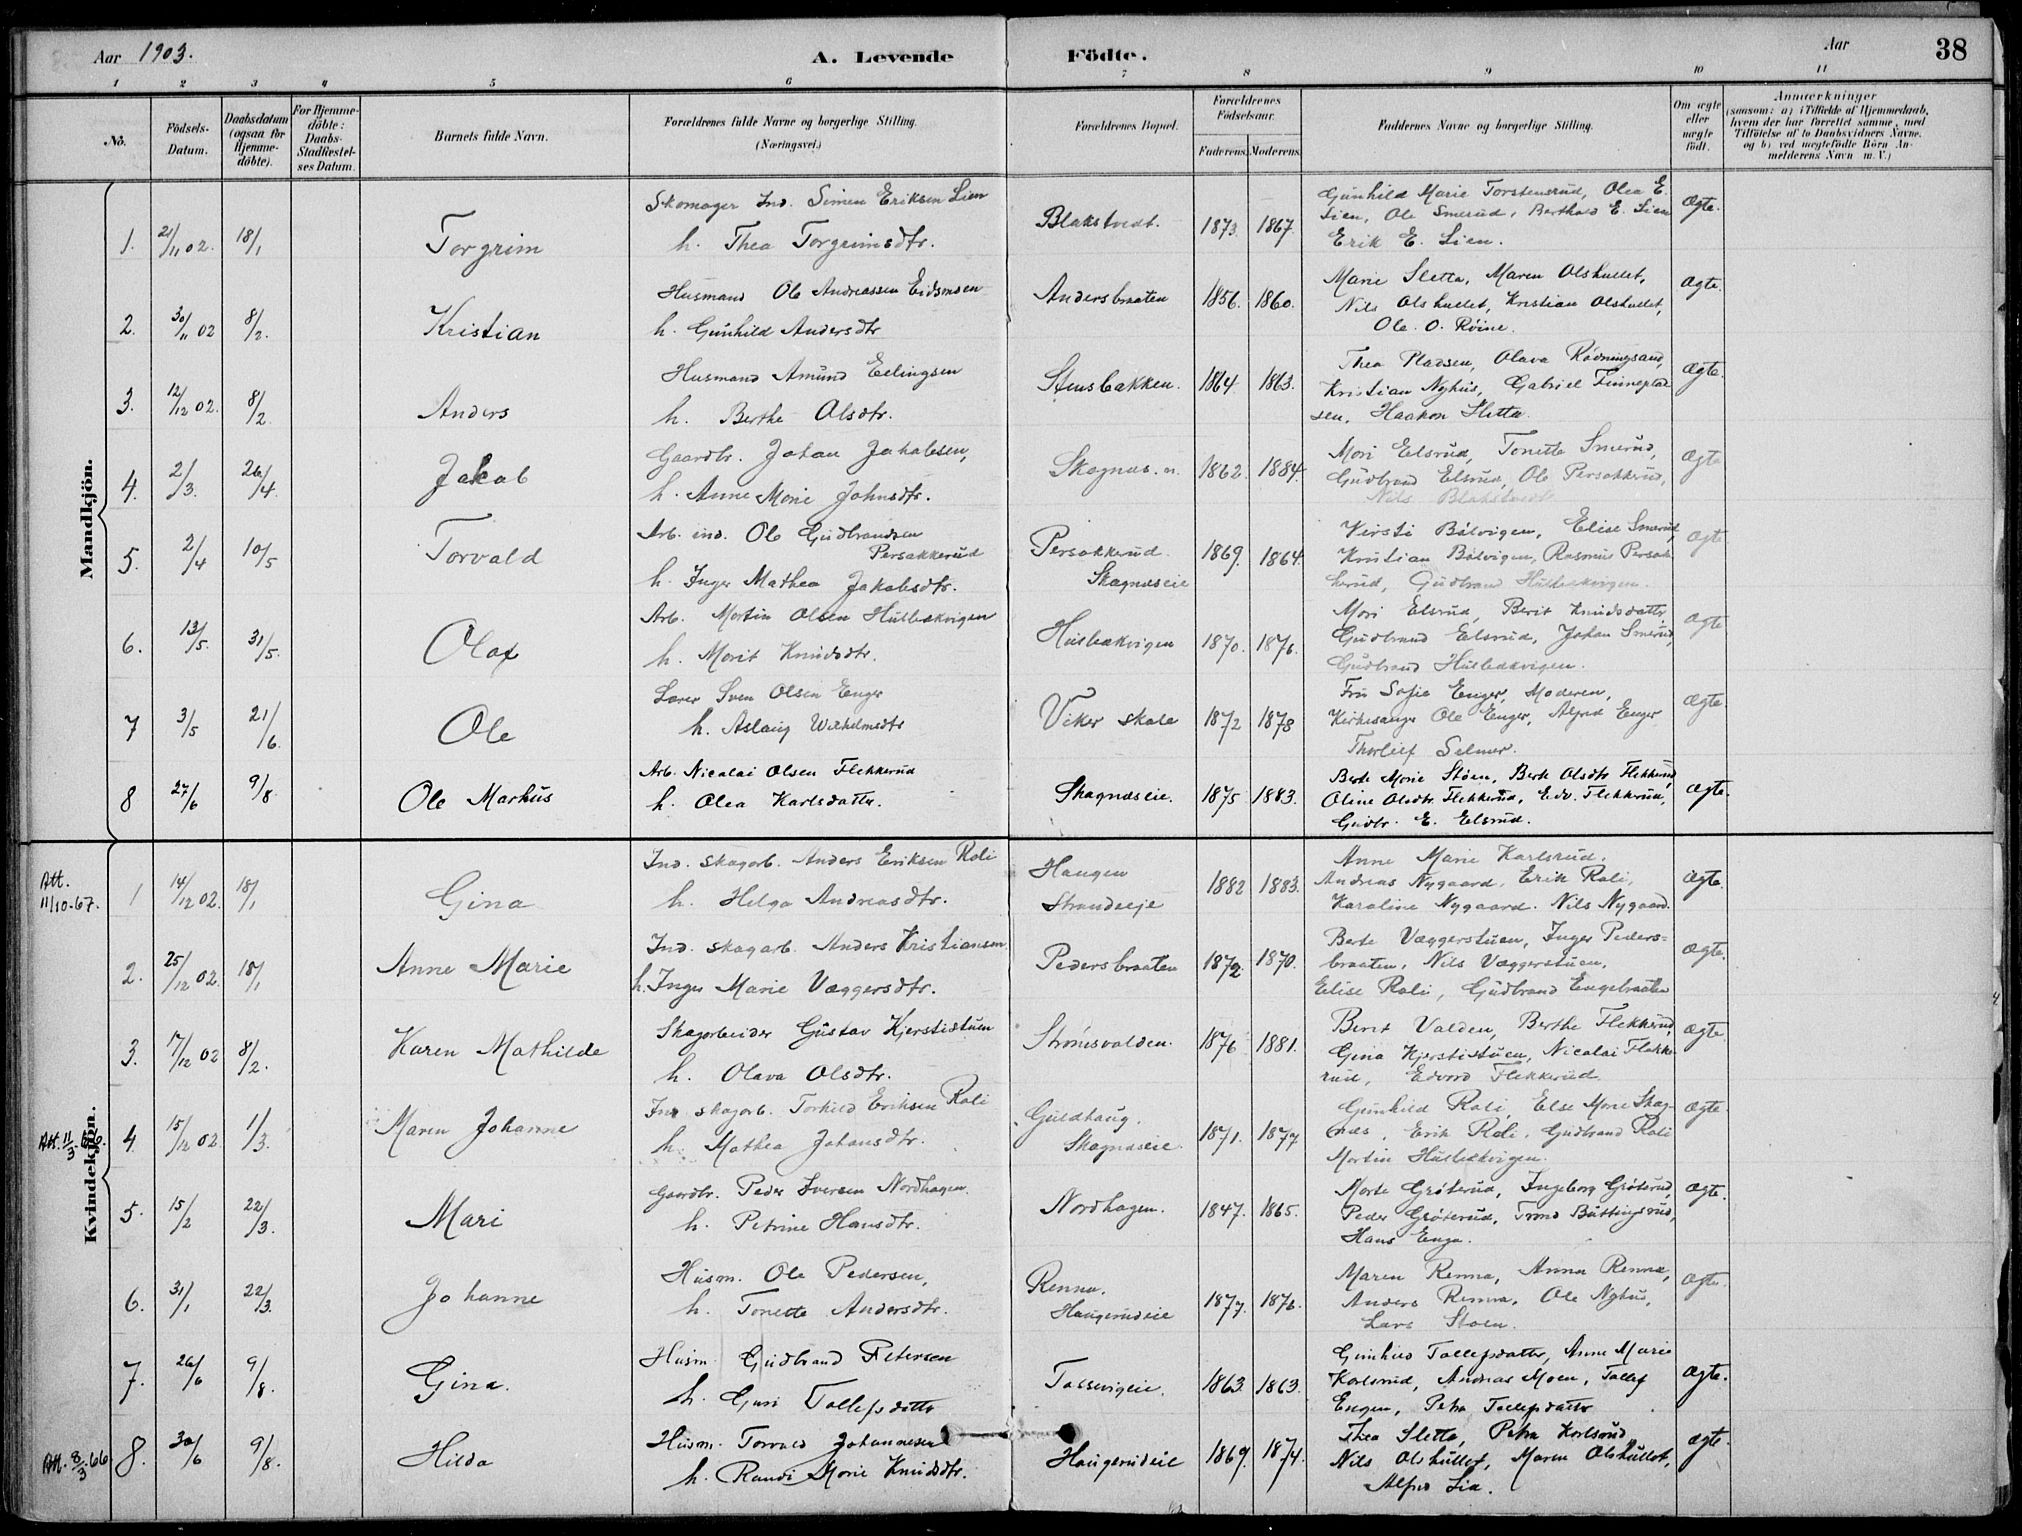 Aar 1903. A. Levende Födte. Aar 38
1 2 3 4 5 6 7 8 9 10 11
No. Födsels-Datum. Daabsdatum (ogsaa for Hjemme-döbte). For Hjemme-döbte: Daabs-Stadfæstel-ses Datum. Barnets fulde Navn. Forældrenes fulde Navne og borgerlige Stilling. (Næringsvei.) Forældrenes Bopæl. Forældrenes Födselsaar. Faderens. Moderens. Faddernes Navne og borgerlige Stilling. Om ægte eller uægte födt. Anmærkninger (saasom: a) i Tilfælde af Hjemmedaab, hvem der har forrettet samme, med Tilföielse af to Daabsvidners Navne. og b) ved uægtefödte Börn An-melderens Navn m. V.)
Mandkjön.
1. 21/11 02. 18/1 Torgrim Skomager Ind. Simen Eriksen Lien
h. Thea Torgrimsdtr. Blakstvedt. 1873. 1867. Gunhild Marie Torstensrud, Olea E.
Lien, Ole Smerud, Berthold E. Lien
Erik E. Lien. Ægte.
2. 30/11 02 8/2. Kristian Husmand Ole Andreassen Eidsmoen
h. Gunhild Andersdtr Andersbraaten 1856. 1860. Marie Sletta, Maren Olshullet,
Nils Olshullet, Kristian Olshullet,
Ole. O. Röine. Ægte.
3. 12/12 02. 8/2 Anders Husmand Amund Erlingsen
h. Berthe Olsdtr. Stensbakken. 1864. 1863. Thea Pladsen, Olava
Kristian Nyhus, Gabriel Finneplad
sen, Haakon Sletta. Ægte.
4. 2/3. 26/4. Jakob Gaardbr. Johan Jakobsen,
h. Anne Marie Johnsdtr. Skagnæs. 1862. 1884. Mari Elsrud, Tonette Smerud,
Gudbrand Elsrud, Ole Persokkerud,
Nils Blakstvedt Ægte
5. 2/4 10/5 Torvald Arb. ind. Ole Gudbrandsen
Persokkerud
h. Inger Mathea Jakobsdtr. Persokkerud.
Skagnæseie 1869. 1864. Kirsti Bölvigen, Elise Smerud,
Kristian Bölvigen, Rasmus Persok
kerud, Gudbrand Hulbækvigen. Ægte
6. 13/5. 31/5. Olaf Arb. Martin Olsen Hulbækvigen
h. Marit Knudsdtr. Hulbækvigen 1870. 1876. Mari Elsrud, Berit Knudsdatter,
Gudbrand Elsrud, Johan Smerud,
Gudbrand Hulbækvigen. Ægte
7 3/5 21/6. Ole Lærer Sven Olsen Enger
h. Aslaug Wilhelmsdtr Viker skole 1872 1878 Fru Sofie Enger, Moderen,
Kirkesanger Ole Enger, Alfred Enger
Thorleif Selmer. Ægte
8 27/6 9/8. Ole Markus Arb. Nicolai Olsen Flekkerud
h. Olea Karlsdatter. Skagnæseie. 1875 1883. Berte Marie Stöen, Berte Olsdtr Flekkerud,
Oline Olsdtr. Flekkerud, Edv. Flekkerud,
Gudbr. E. Elsrud. Ægte.
Kvindekjön.
Att. 11/10-67. 1 14/12 02. 18/1 Gina Ind. skogarb. Anders Eriksen Roli
h. Helga Andreasdtr. Haugen
Strandeeje 1882 1883. Anne Marie Karlsrud.
Andreas Nygaard, Erik Roli,
Karoline Nygaard. Nils Nygaard. Ægte.
2. 25/12 02. 18/1 Anne Marie Ind. skogarb. Anders Kristiansen.
h. Inger Marie Væggersdtr. Pedersbraaten 1872. 1870. Berte Væggerstuen, Inger Peders-
braaten, Nils Væggerstuen,
Elise Roli, Gudbrand Engebraaten Ægte.
3. 17/12 02 8/2. Karen Mathilde Skogarbeider Gustav Kjerstistuen
h. Olava Olsdtr. Strömsvolden. 1876 1881. Berit Volden, Berthe Flekkerud,
Gina Kjerstistuen, Nicolai Flekke-
rud, Edvard Flekkerud. Ægte
Att. 11/3-66. 4. 15/12 02 1/3. Maren Johanne Ind skogarb. Torkild Eriksen Roli
h. Mathea Johansdtr. Guldhaug.
Skagnæseie 1871. 1877 Gunhild Roli, Else Marie Skag-
næs, Erik Roli, Gudbrand Roli
Martin Hulbækvigen. Ægte
5. 15/2 22/3. Mari Gaardbr. Peder Iversen Nordhagen.
h. Petrine Hansdtr. Nordhagen. 1847. 1865. Marte Gröterud, Ingeborg Gröterud,
Peder Gröterud, Trond Buttingsrud,
Hans Enga. Ægte.
6. 31/1 22/3. Johanne Husm. Ole Pedersen,
h. Tonette Andersdtr. Renna.
Haugerudeie 1877. 1876. Maren Renna, Anna Renna,
Anders Renna, Ole Nyhus,
Lars Stöen. Ægte.
7. 26/6 9/8. Gina. Husm. Gudbrand Petersen
h. Guri Tollefsdatter Tossevigeie. 1863. 1863. Gunhild Tollefsdatter, Anne Marie
Karlsrud, Andreas Moen, Tollef
Engen, Petra Tollefsdatter Ægte.
Att. 8/3-66 8. 30/6 9/8. Hilda Husm. Torvald Johannesen
h. Randi Marie Knudsdtr. Haugerudeie 1869. 1874. Thea Sletta, Petra Karlsrud,
Nils Olshullet, Maren Olshullet,
Alfred Lia. Ægte.